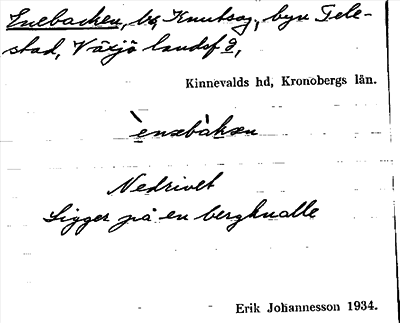 Enebacken, bs, Knutsög, byn Tele-
stad, Växjö landsf 9,
Kinnevalds hd, Kronobergs län.
`enəbàkən
Nedrivet
Ligger på en bergknalle
Erik Johannesson 1934.